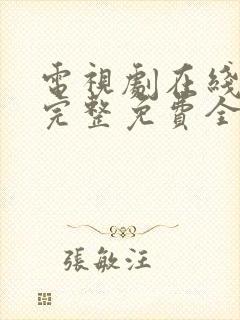 電視劇在綫
完整免費全
張敏汪